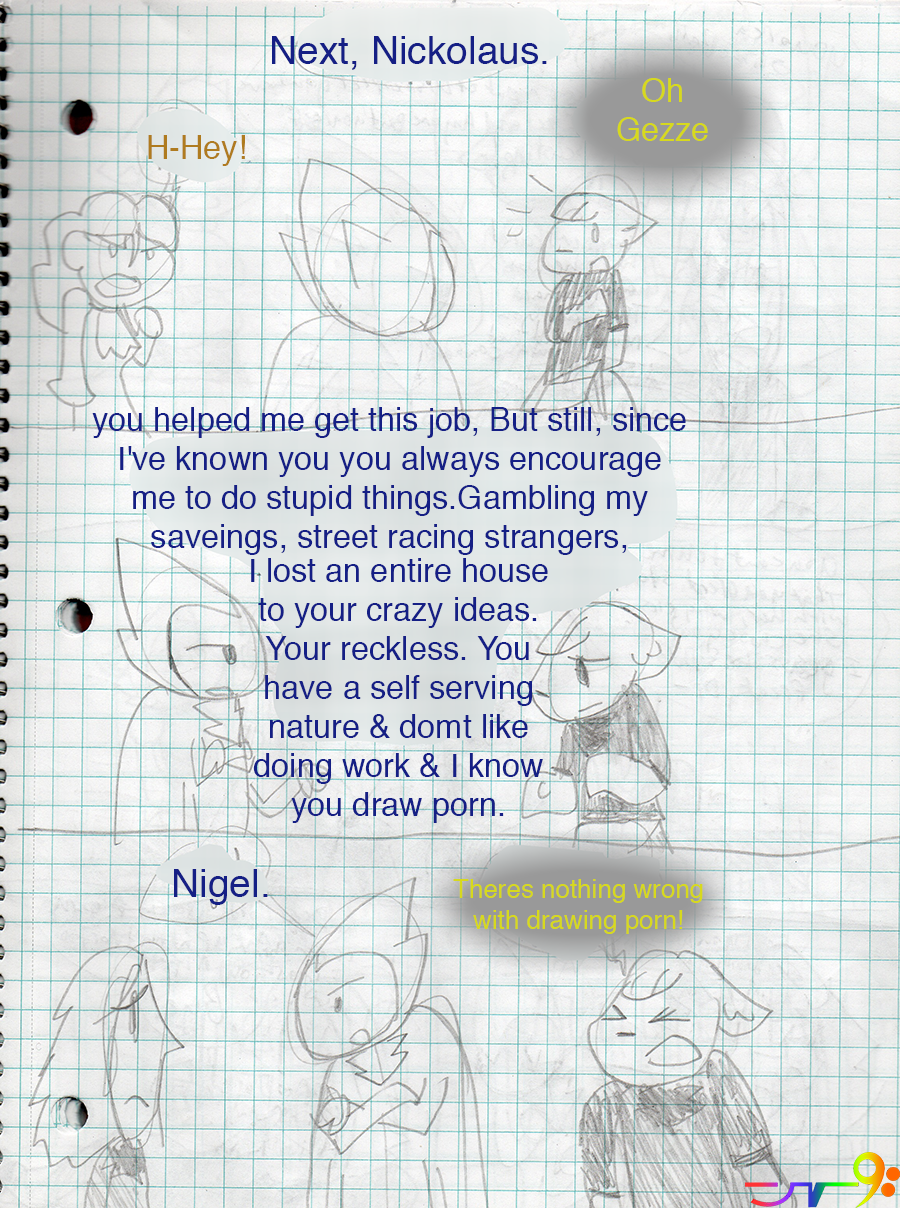 Next, Nickolaus.
Oh
Gezze
H-Hey!
you helped me get this job, But still, since
I've known you you always encourage
me to do stupid things.Gambling my
saveings, street racing strangers,
I lost an entire house
to your crazy ideas.
Your reckless. You
have a self serving
nature & domt like
doing work & I know
you draw porn.
Nigel.
Theres nothing wrong
with drawing porn!